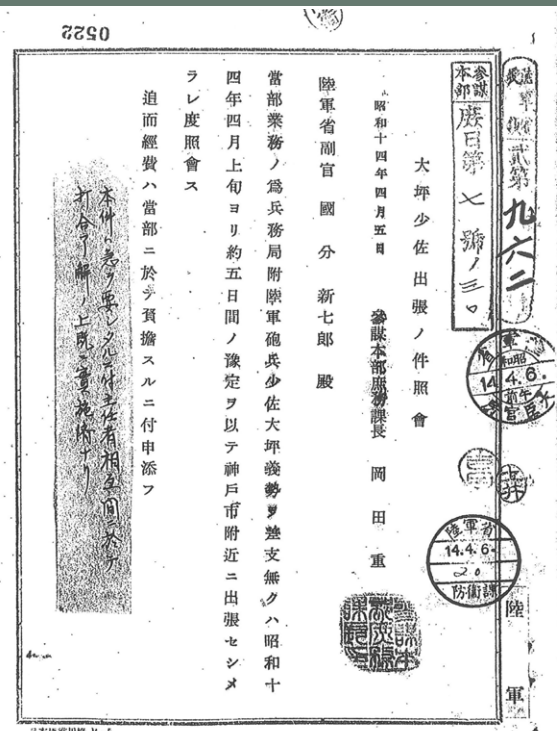 0522
陸軍
參謀本部
庶日第七號ノ三〇
貳第九六二
大坪少佐出張ノ件照會
昭和十四年四月五日 參謀本部庶務課長 岡田重
陸軍省副官 國分新七郎殿
當部業務ノ爲兵務局附陸軍砲兵少佐大坪義勢ヲ差支無クハ昭和十
四年四月上旬ヨリ約五日間ノ豫定ヲ以テ神戸市附近ニ出張セシメ
ラレ度照會ス
追而經費ハ當部ニ於テ負擔スルニ付申添フ
本件ハ急ヲ要シタルニ付主任者相互間ニ於テ
打合了解ノ上既ニ實施濟ナリ
昭和
14.4.6.
午前
陸軍省
14.4.6
20
防衛課